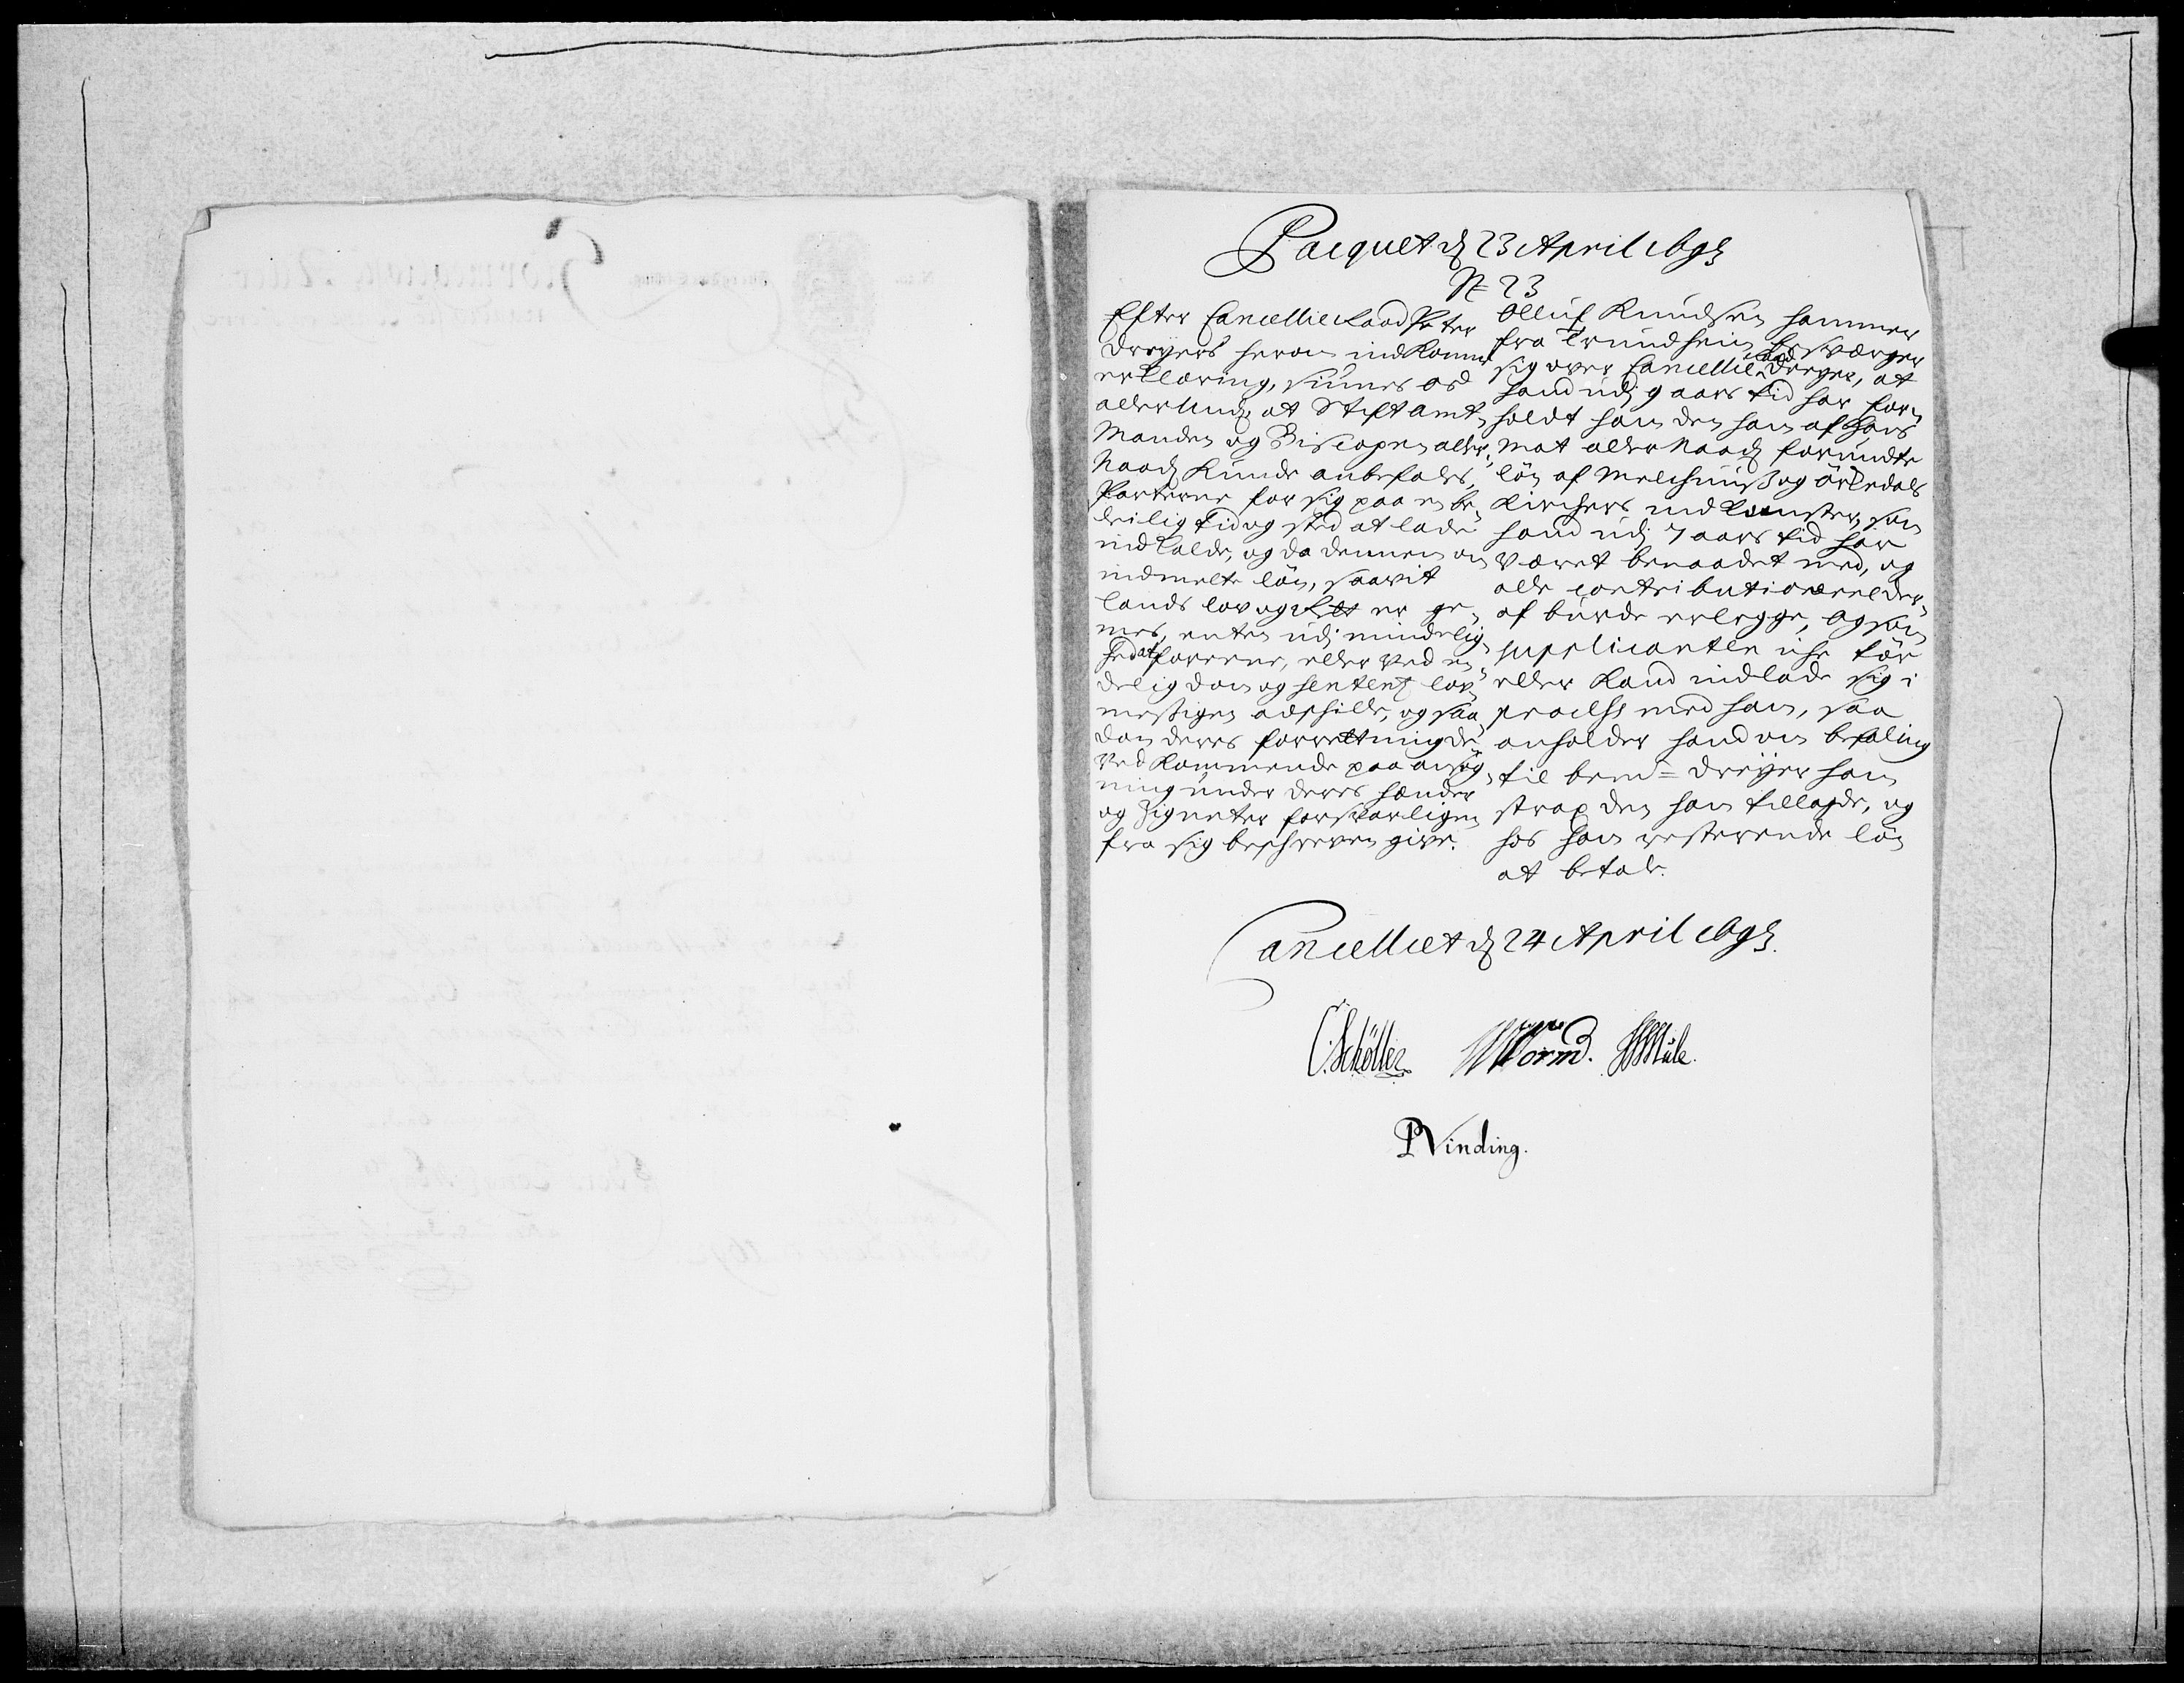 Pacquet d 23 April 1693
N 23
Efter Cancellie Raad Peter
Dreyers herom indkomne
erklæring, siunes os
allerund: at Stiftamt-
Manden og Biscopen aller-
naad kunde anbefales,
Parterne for sig paa en be-
leilig tid og sted at lade
indkalde, og da dennem om
indmelte løn, saavit
lands lov og Ret er ge-
mes, enten udj mindelig-
hed at foreene, eller ved en-
delig dom og sentenz lov-
messigen adskille, og saa-
dan deres forretning de
vedkommende paa ansøg-
ning under deres hænder
og Zigneter forsvarligen
fra sig beskreven give.
Olluf Knudsen hammer
fra Trundheim besværger
sig over Cancellie Raad Dreyer, at
hand udj 9 aars tid har for-
holdt ham den ham af Hans
May: allernaad forundte
løn af Melhuus og Örkedals
Kirchers indkomster, som
hand udj 7 aars tid har
været benaadet med, og
alle contributioner der-
af burde erlegge, Og som
supplicanten iche tør
eller kand indlade sig i
process med ham, saa
anholder hand om befaling
til bemte Dreyer ham
strax den ham tillagde, og
hos ham resterende løn
at betale.
Cancelliet d 24 April 1693.
C. Schöller Worm. HMule.
PVinding.